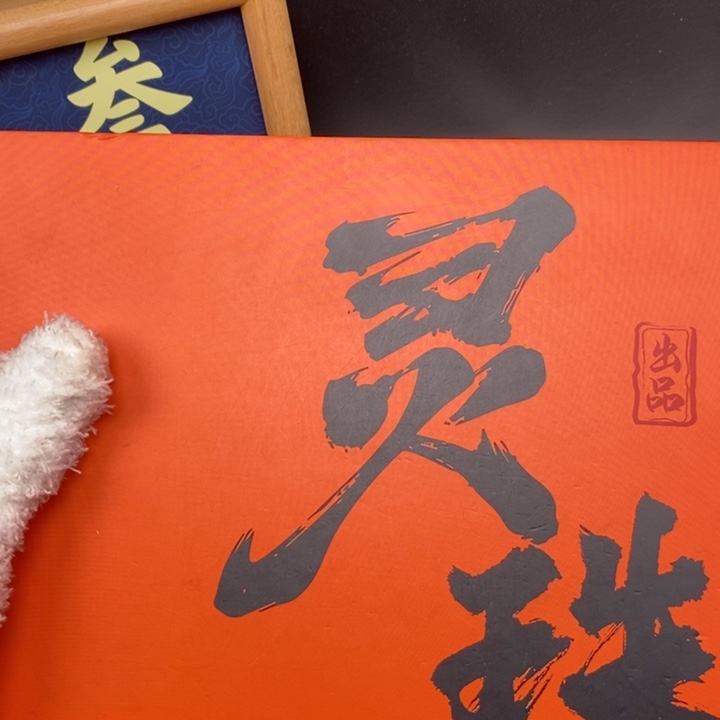 叁
灵珠
出品